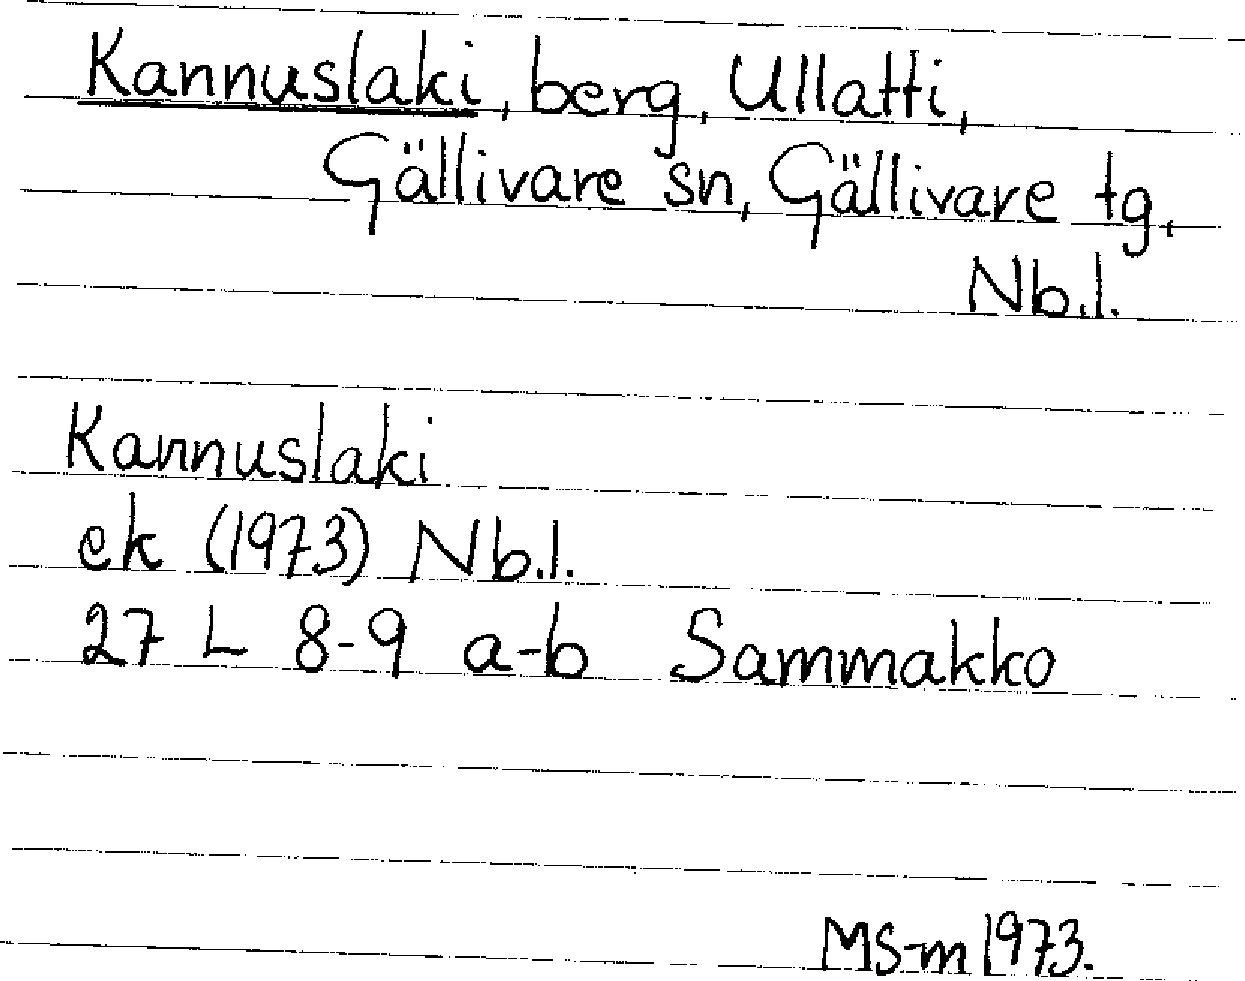 Kannuslaki, berg, Ullatti,
Gällivare sn, Gällivare tg,
Nb.l.
Kannuslaki
ek (1973) Nb.l.
27 L 8-9 a-b Sammakko
MS-m 1973.